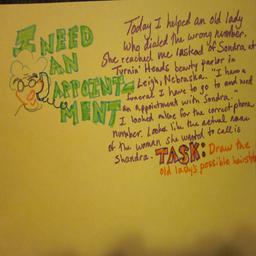 I NEED
AN
APPOINT-
MENT
Today I helped an old lady
who dialed the wrong number.
She reached me instead of Sondra at
Turnin' Heads beauty parlor in
Leigh, Nebraska. "I have a
funeral I have to go to and need
an appointment with Sondra.
I looked online for the correct phone
number. Looks like the actual name
of the woman she wanted to call is
Shandra. TASK: Draw the
old lady's possible hairstyle